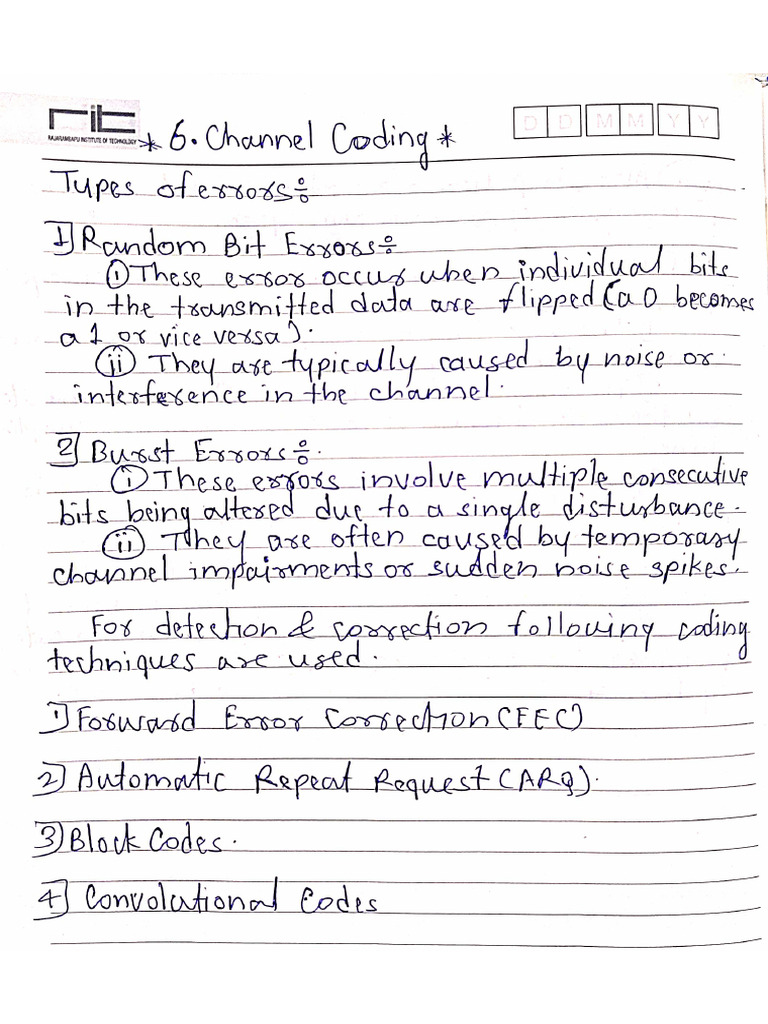 rit
RAJARAMBAPU INSTITUTE OF TECHNOLOGY
* 6. Channel Coding *
D D M M Y Y
Types of errors:
1] Random Bit Errors:
① These error occur when individual bits
in the transmitted data are flipped (a 0 becomes
a 1 or vice versa).
(ii) They are typically caused by noise or
interference in the channel.
2] Burst Errors:
① These errors involve multiple consecutive
bits being altered due to a single disturbance.
(ii) They are often caused by temporary
channel impairments or sudden noise spikes.
For detection & correction following coding
techniques are used.
1] Forward Error Correction (FEC)
2] Automatic Repeat Request (ARQ).
3] Block Codes.
4] Convolutional Codes